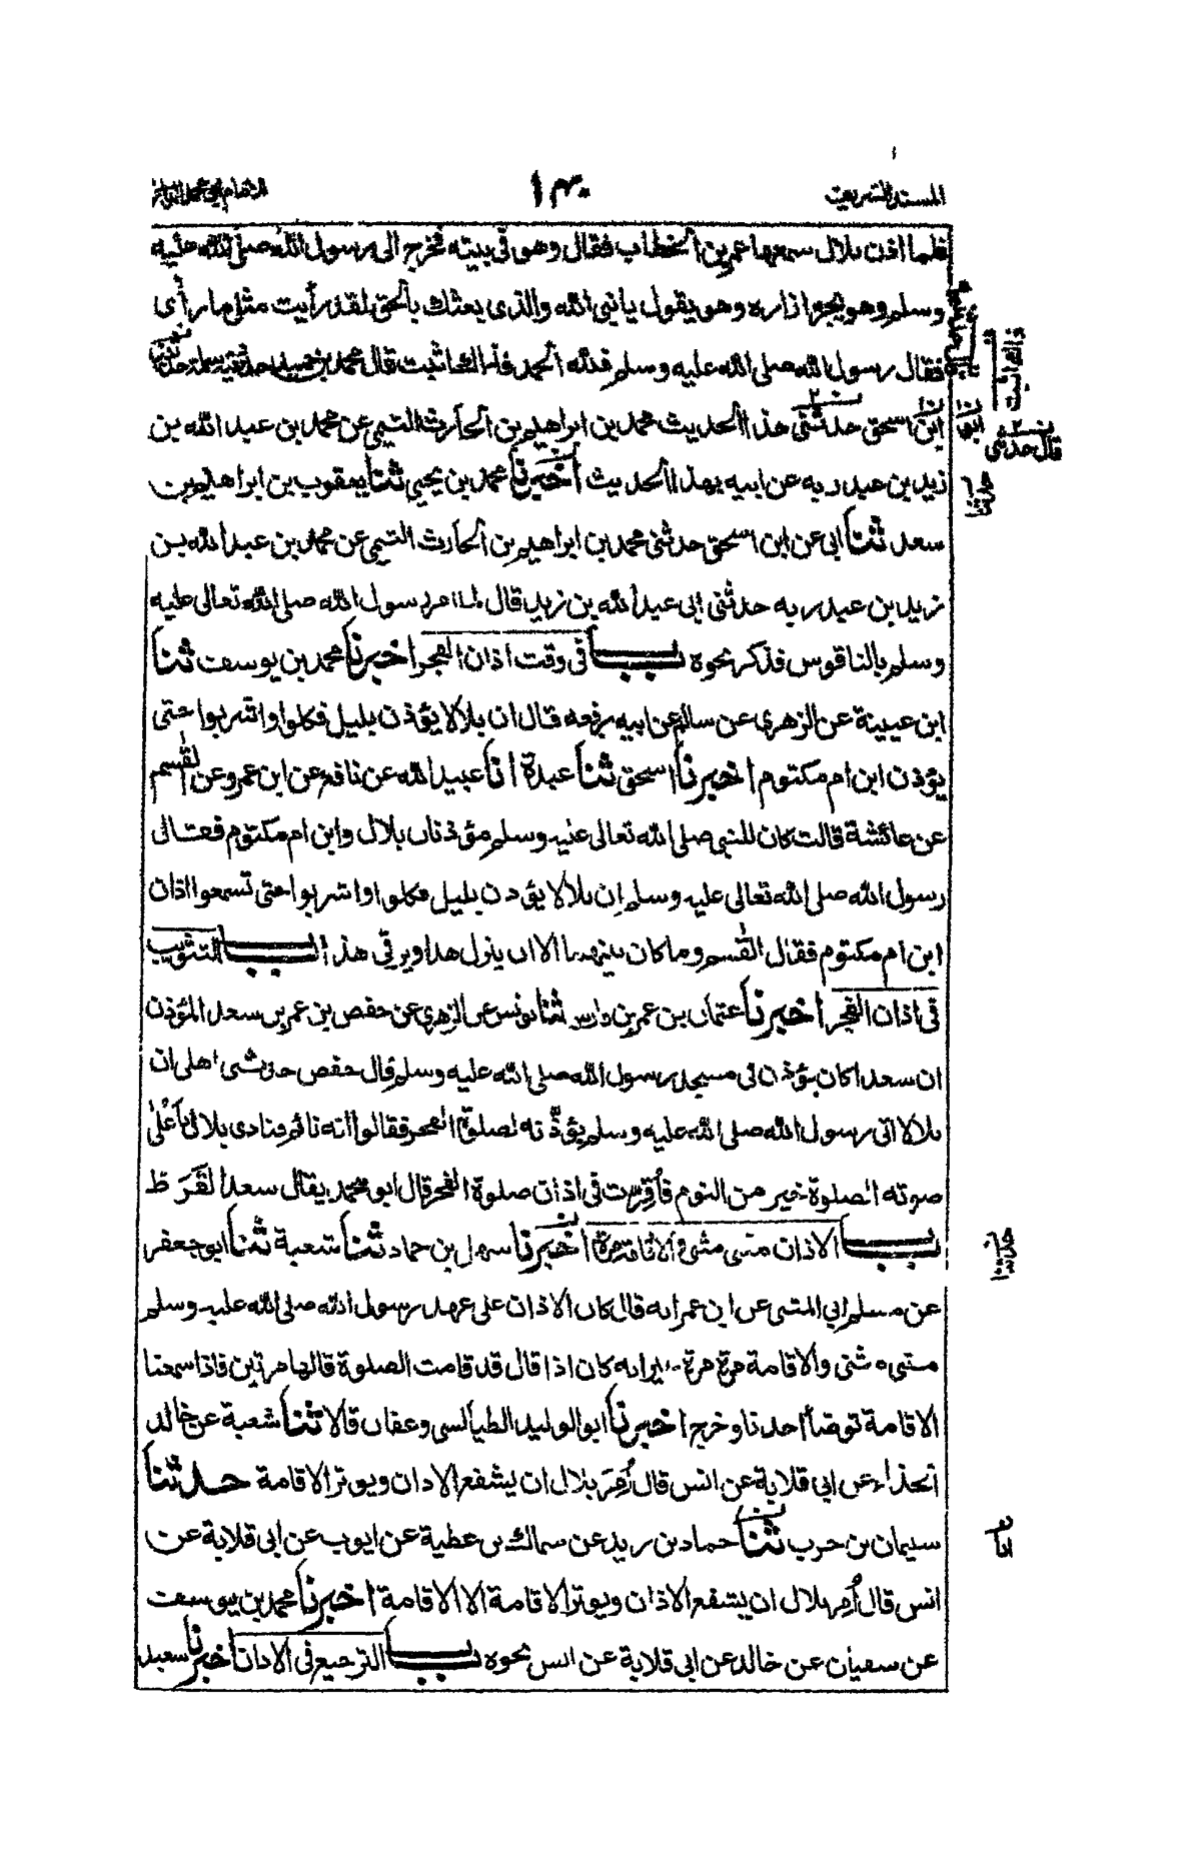 المسند الشريف
١٣٠
فلما اذن بلال سمعها عمر بن الخطاب فقال وهو فى بيته فخرج الى رسول الله صلى الله عليه
وسلم وهو يجر ازاره وهو يقول يا نبى الله والذى بعثك بالحق لقد رأيت مثل ما رأى
فقال رسول الله صلى الله عليه وسلم فلله الحمد فذلك اثبت قال محمد بن حميد حدثنيه سلمة حدثنى
ابن اسحق حدثنى هذا الحديث محمد بن ابراهيم بن الحارث التيمى عن محمد بن عبد الله بن
زيد بن عبد ربه عن ابيه بهذا الحديث اخبرنا محمد بن يحيى ثنا يعقوب بن ابراهيم بن
سعد ثنا ابى عن ابن اسحق حدثنى محمد بن ابراهيم بن الحارث التيمى عن محمد بن عبد الله بن
زيد بن عبد ربه حدثنى ابى عبد الله بن زيد قال لما امر رسول الله صلى الله تعالى عليه
وسلم بالناقوس فذكر نحوه باب فى وقت اذان الفجر اخبرنا محمد بن يوسف ثنا
ابن عيينة عن الزهرى عن سالم عن ابيه يرفعه قال ان بلالا يؤذن بليل فكلوا واشربوا حتى
يؤذن ابن ام مكتوم اخبرنا اسحق ثنا عبدة انا عبيد الله عن نافع عن ابن عمر وعن القسم
عن عائشة قالت كان للنبى صلى الله تعالى عليه وسلم مؤذنان بلال وابن ام مكتوم فقال
رسول الله صلى الله تعالى عليه وسلم ان بلالا يؤذن بليل فكلوا واشربوا حتى تسمعوا اذان
ابن ام مكتوم فقال القسم وما كان بينهما الا ان ينزل هذا ويرقى هذا باب التثويب
فى اذان الفجر اخبرنا عثمان بن عمر بن فارس ثنا يونس عن الزهرى عن حفص بن عمر بن سعد المؤذن
ان سعدا كان يؤذن فى مسجد رسول الله صلى الله عليه وسلم قال حفص حدثنى اهلى ان
بلالا اتى رسول الله صلى الله عليه وسلم يؤذنه لصلوة الفجر فقالوا انه نائم فنادى بلال بأعلى
صوته الصلوة خير من النوم فأقرت فى اذان صلوة الفجر قال ابو محمد يقال سعد القرظ
باب الاذان مثنى مثنى والاقامة مرة اخبرنا سهل بن حماد ثنا شعبة ثنا ابو جعفر
عن مسلم ابى المثنى عن ابن عمر انه قال كان الاذان على عهد رسول الله صلى الله عليه وسلم
مثنى مثنى والاقامة مرة مرة غير انه كان اذا قال قد قامت الصلوة قالها مرتين فاذا سمعنا
الاقامة توضأ احدنا وخرج اخبرنا ابو الوليد الطيالسى وعفان قالا ثنا شعبة عن خالد
الحذاء عن ابى قلابة عن انس قال أمر بلال ان يشفع الاذان ويوتر الاقامة حدثنا
سليمان بن حرب ثنا حماد بن زيد عن سماك بن عطية عن ايوب عن ابى قلابة عن
انس قال أمر بلال ان يشفع الاذان ويوتر الاقامة الا الاقامة اخبرنا محمد بن يوسف
عن سفيان عن خالد عن ابى قلابة عن انس نحوه باب الترجيع فى الاذان اخبرنا سعيد
فذالك اثبت
قال حدثنى
حدثنا
حدثنا
انا